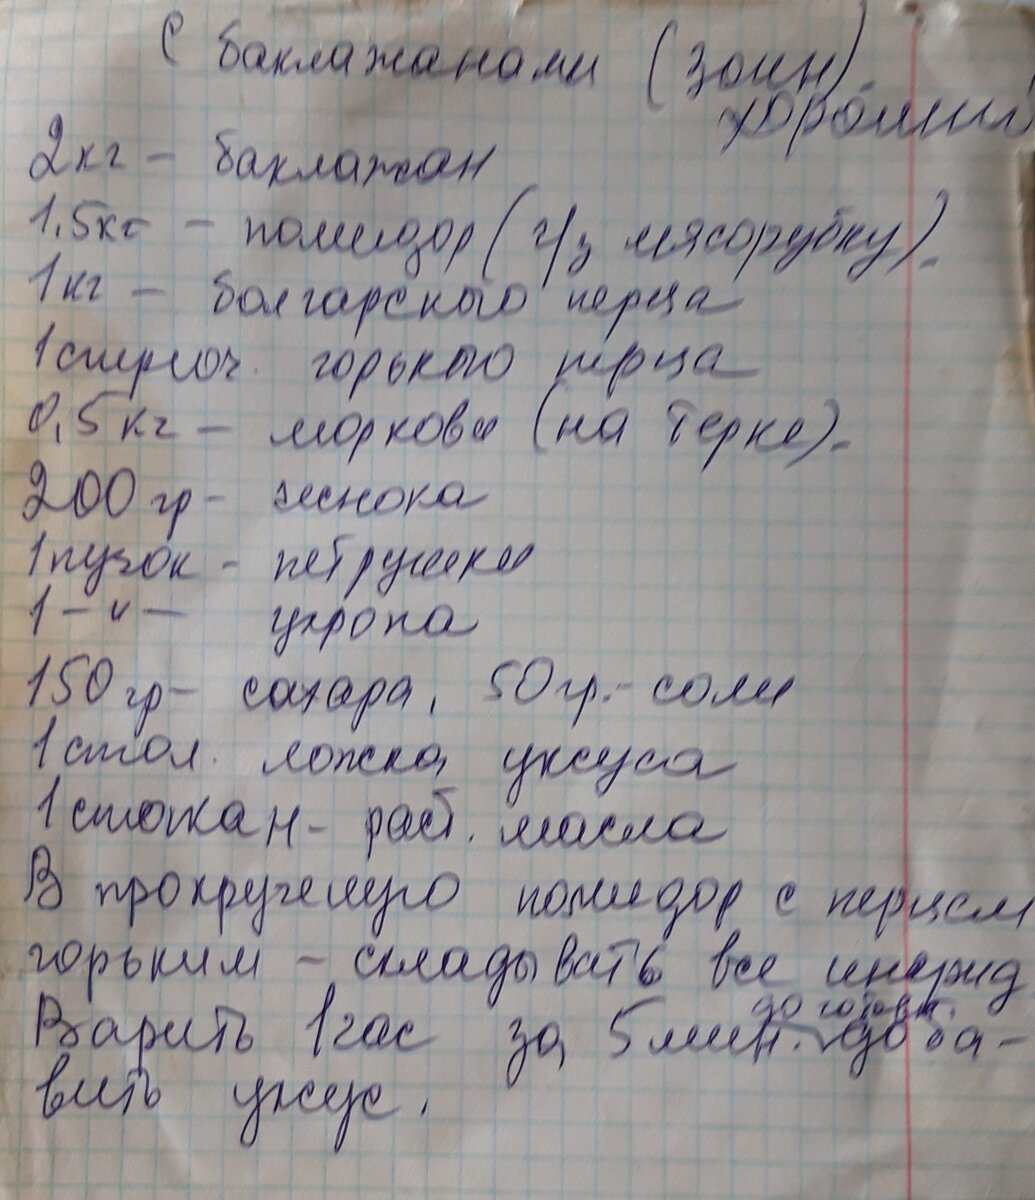 С баклажанами (Зоин).
хороший
2кг – баклажан
1,5кг – помидор (ч/з мясорубку).
1кг – болгарского перца
1стручоч. горького перца
0,5кг – моркови (на терке).
200гр – чеснока
1пучок – петрушки
1 –"– укропа
150гр – сахара, 50гр. – соли
1стол. ложка уксуса
1стакан – раст. масла
В прокрученую помидор с перцем
горьким – складывать все ингрид
до готовн.
Варить 1час за 5мин. доба-
вить уксус.